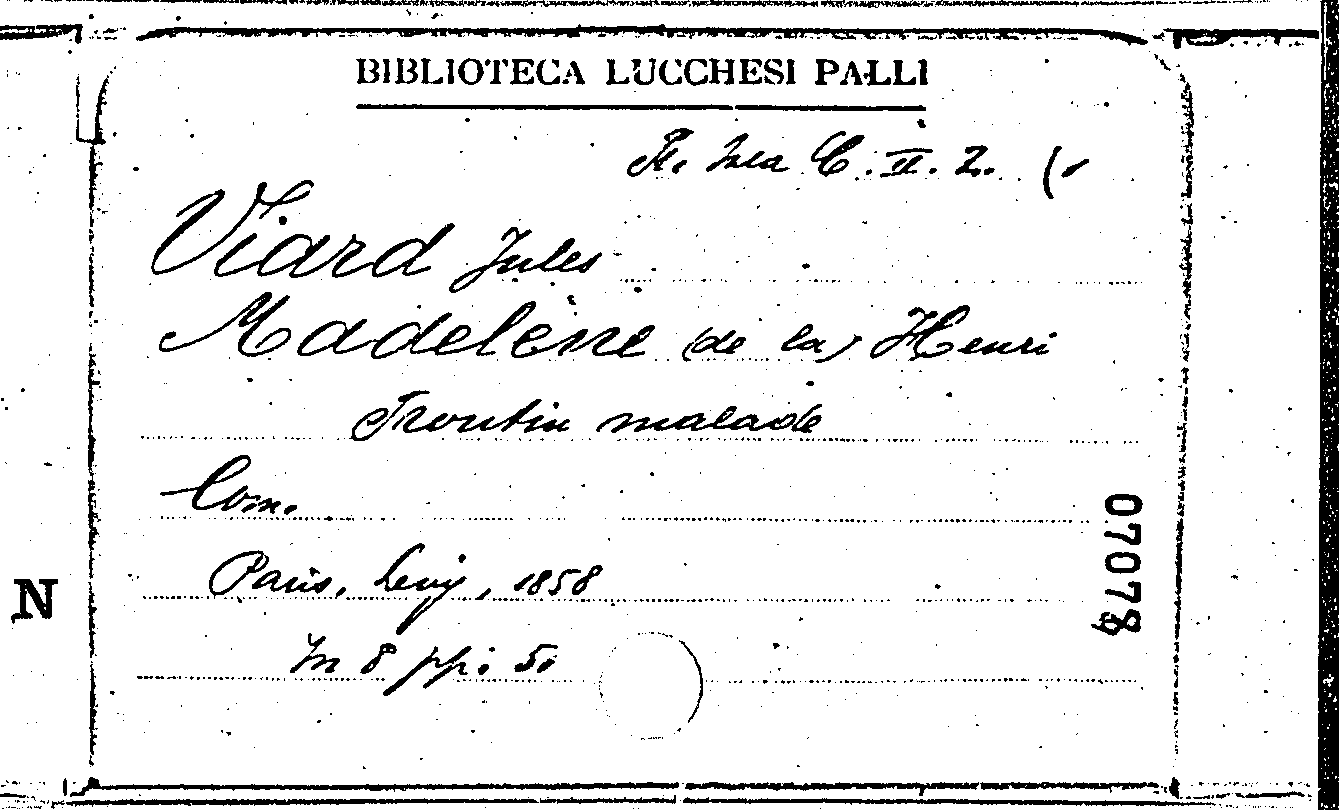 BIBLIOTECA LUCCHESI PALLI
C. II. 2. (1
Viard Jules
Madelène (de la) Henri
Frontin malade
Com.
Paris, Levy, 1858
In 8 pp.
N
07078